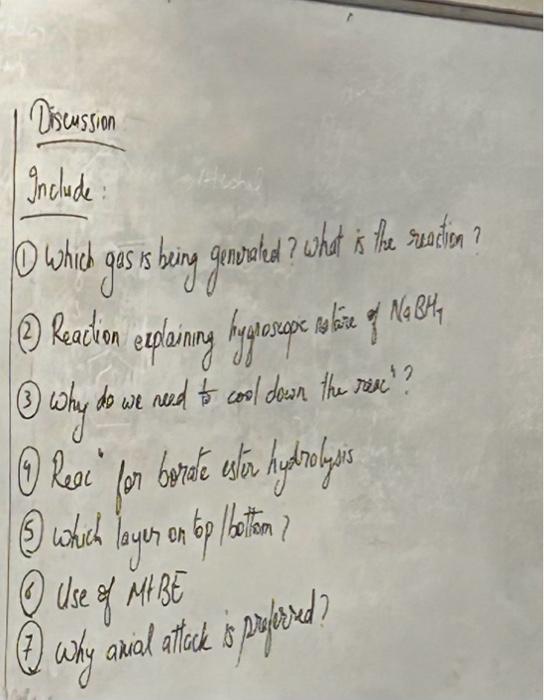 Discussion
Include:
① Which gas is being generated? What is the reaction?
② Reaction explaining hygroscopic nature of NaBH4
③ Why do we need to cool down the reacⁿ?
④ Reacⁿ for borate ester hydrolysis
⑤ Which layer on top/bottom?
⑥ Use of MtBE
⑦ Why axial attack is preferred?